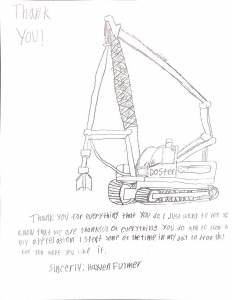 Thank
You!
DOSTER
Thank you for everything that you do I just want to let you
know that we are thankful of everything you do and to show
my appreciation I spent some of the time in my day to draw this
for you hope you like it.
Sincerly: Hayden Furmer